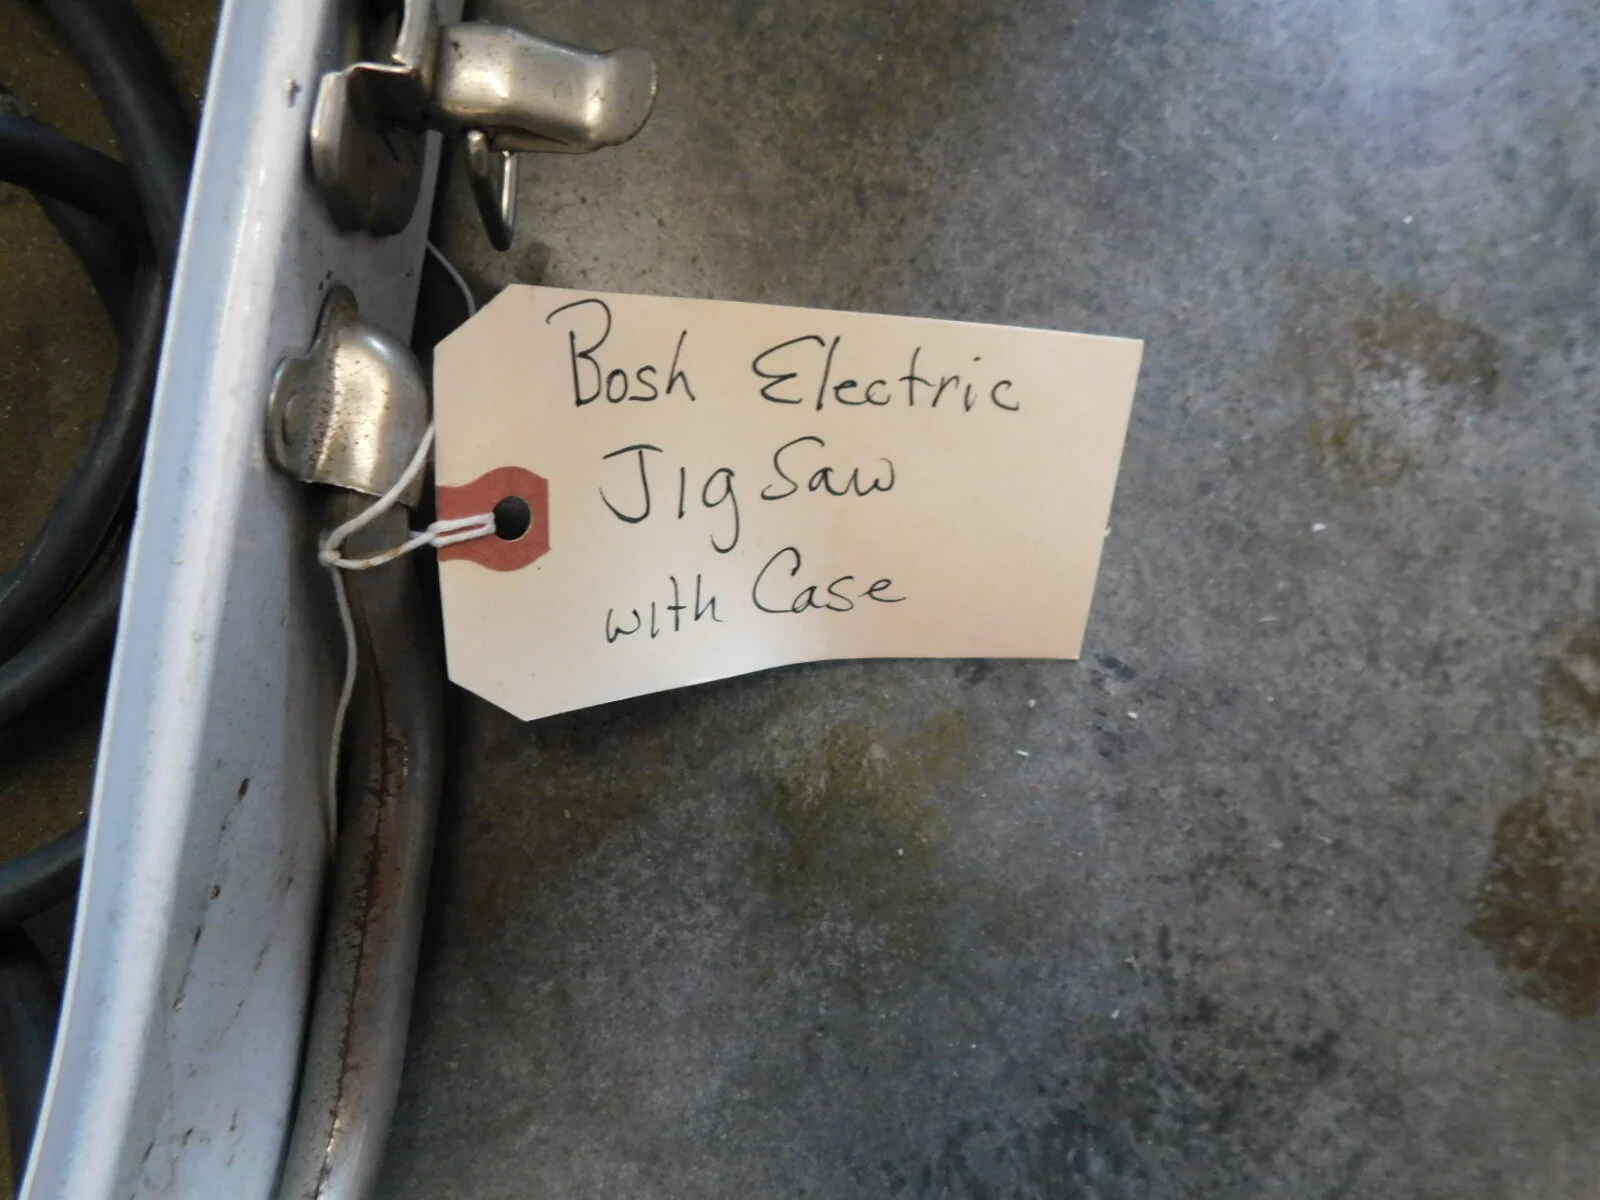 Bosh Electric
Jig Saw
with Case